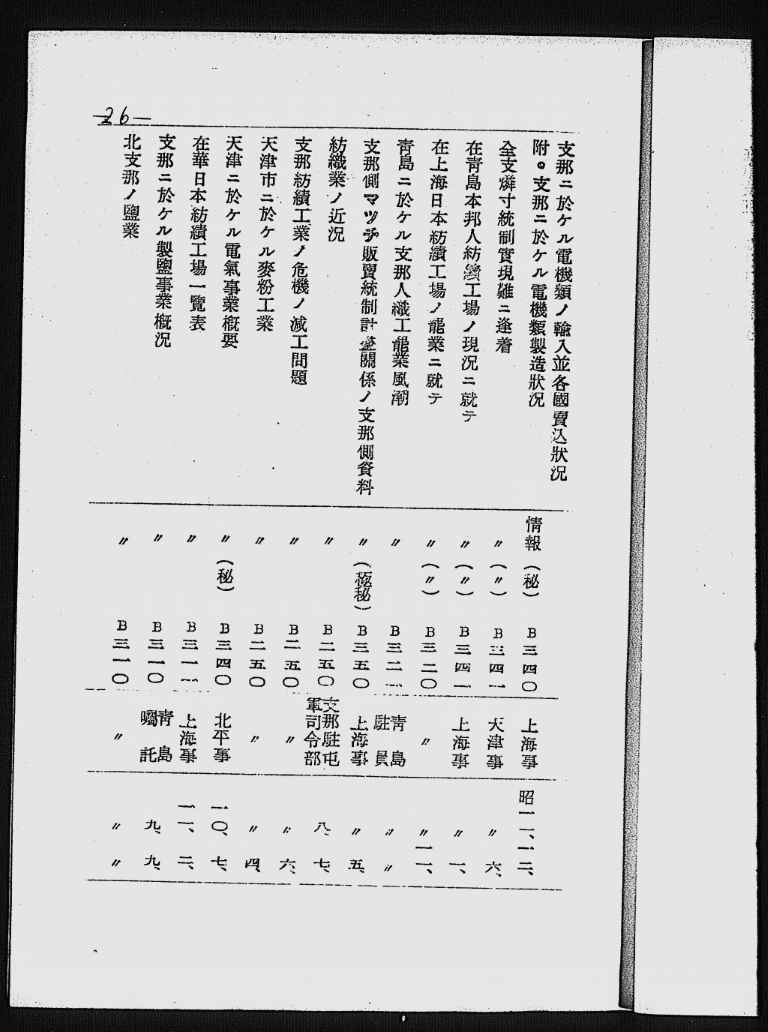 26
支那ニ於ケル電機類ノ輸入並各國賣込狀況
附。支那ニ於ケル電機類製造狀況 情報(秘) B三四〇 上海事 昭一一、一二、
全支燐寸統制實現難ニ逢着 〃(〃) B三四一 天津事 〃 六、
在青島本邦人紡績工場ノ現況ニ就テ 〃(〃) B三四一 上海事 〃 一、
在上海日本紡績工場ノ罷業ニ就テ 〃(〃) B三二〇 〃 〃 一一、
青島ニ於ケル支那人織工罷業風潮 〃 B三二一 青島駐員 〃 〃
支那側マツチ販賣統制計畫關係ノ支那側資料 〃(極秘) B三五〇 上海事 〃 五、
紡織業ノ近況 〃 B二五〇 支那駐屯軍司令部 八、七、
支那紡績工業ノ危機ノ減工問題 〃 B二五〇 〃 〃 六、
天津市ニ於ケル麥粉工業 〃 B二五〇 〃 〃 四、
天津ニ於ケル電氣事業槪要 〃(秘) B三四〇 北平事 一〇、七、
在華日本紡績工場一覽表 〃 B三一一 上海事 一一、二、
支那ニ於ケル製鹽事業槪況 〃 B三一〇 青島囑託 九、九、
北支那ノ鹽業 〃 B三一〇 〃 〃 〃